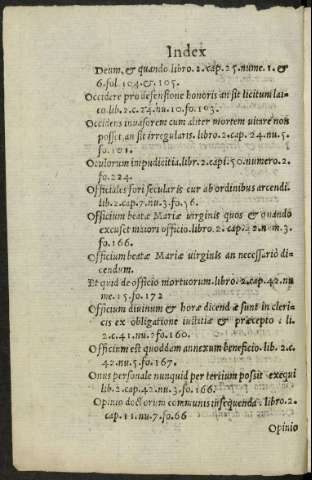 Index
Deum, & quando libro. 2. cap. 25. nume. 1. &
6. fol 104. & . 105.
Occidere pro defensione honoris an sit licitum lai-
co. lib. 2. c. 24. nu. 10. fo. 103.
Occidens inuasorem cum aliter mortem uitare nõ
posset, an sit irregularis. libro. 2. cap. 24. nu. 5.
fo. 101.
Oculorum impudicitia. libr. 2. capi. 50. numero. 2.
fo. 224.
Officiales fori secularis cur ab ordinibus arcendi.
lib. 2. cap. 7. nu. 3. fo. 36.
Officium beatæ Mariæ uirginis quos & quando
excuset maiori officio. libro. 2. cap. 42. num. 3.
fo. 166.
Officium beatæ Mariæ uirginis an necessariò di-
cendum.
Et quid de officio mortuorum. libro. 2. cap. 42. nu
me. 15. fo. 172
Officium diuinum & horæ dicendæ sunt in cleri-
cis ex obligatione iustitiæ & præcepto: li.
2. c. 41. nu. 2. fo. 160.
Officium est quoddam annexum beneficio. lib. 2. c.
42. nu. 5. fo. 167.
Onus personale nunquid per tertium possit exequi
lib. 2. cap. 42. nu. 3. fo. 166.
Opinio doctorum communis insequenda. libro. 2.
cap. 11. nu. 7. fo. 66
Opinio